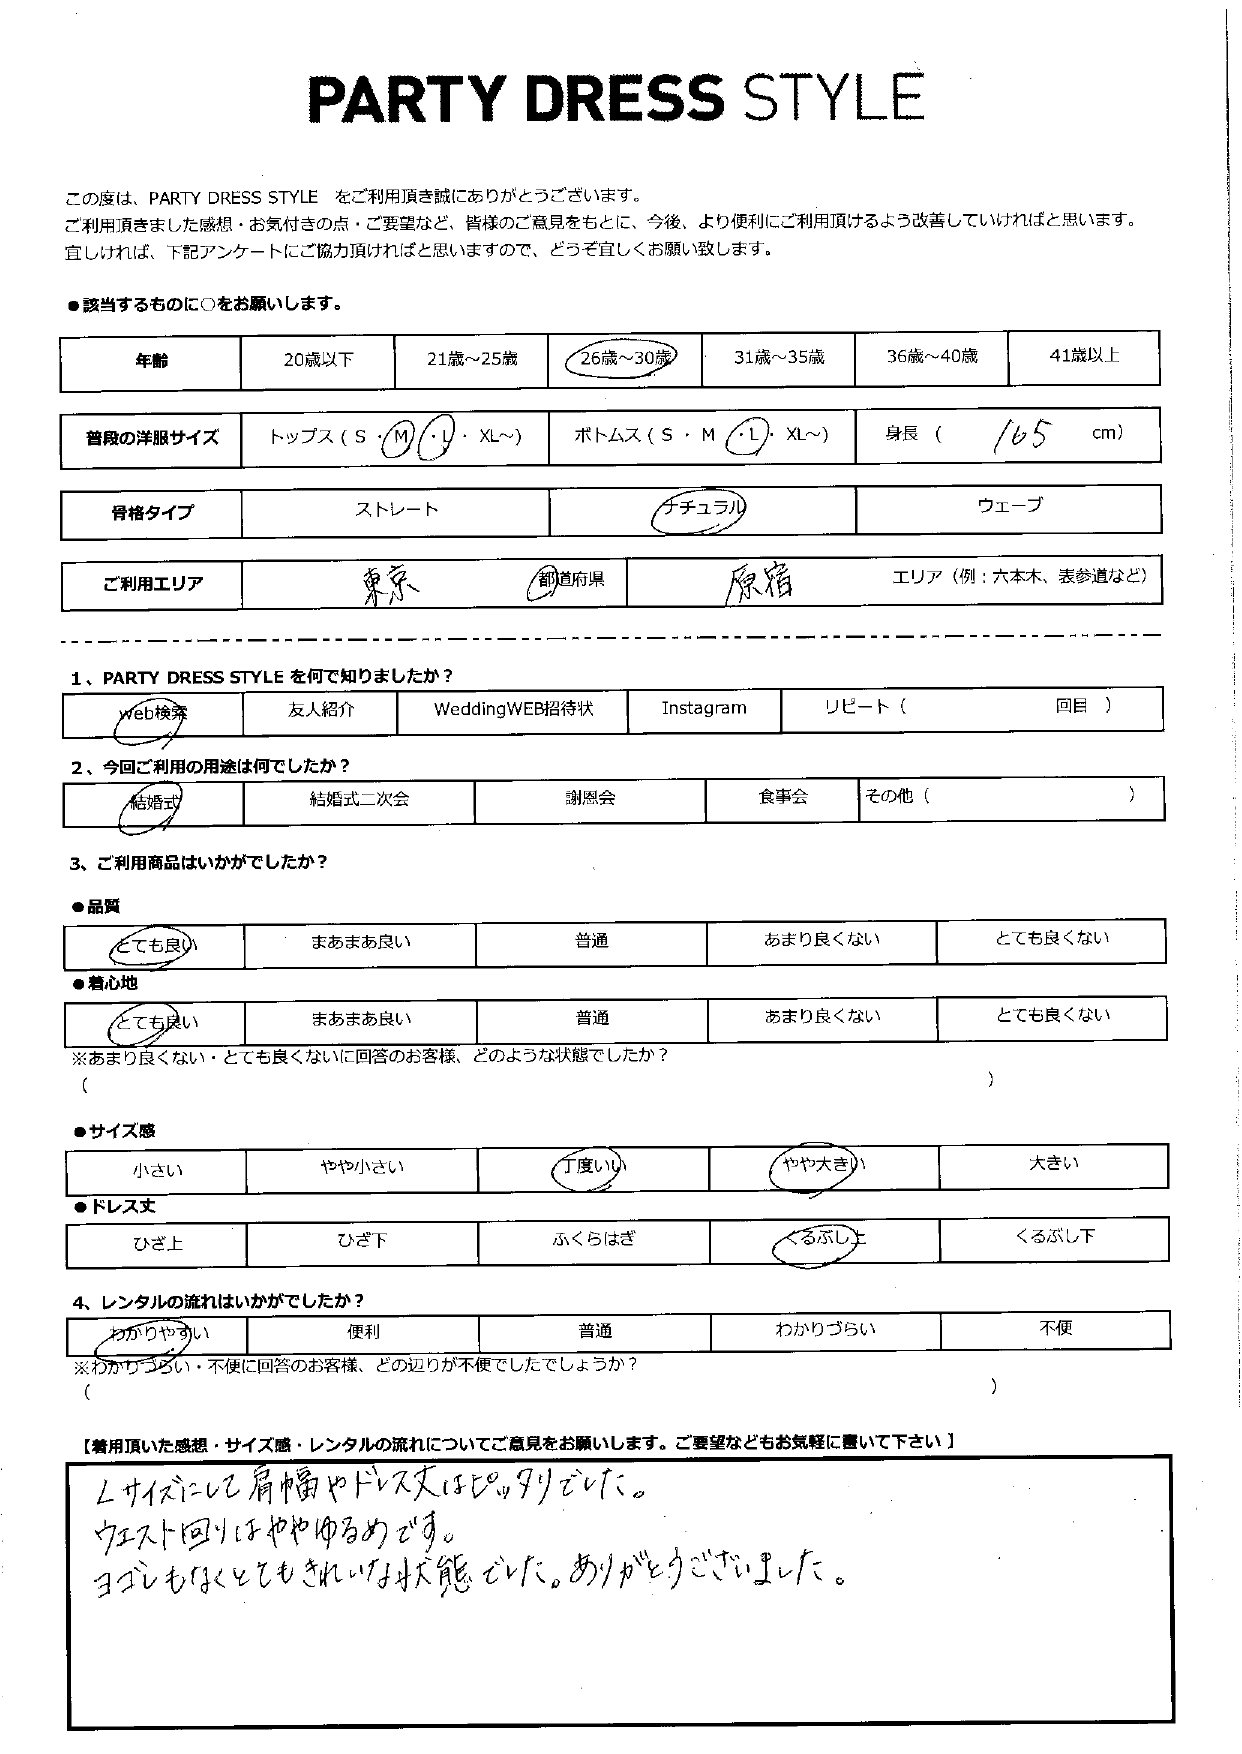 PARTY DRESS STYLE
この度は、PARTY DRESS STYLE をご利用頂き誠にありがとうございます。
ご利用頂きました感想・お気付きの点・ご要望など、皆様のご意見をもとに、今後、より便利にご利用頂けるよう改善していければと思います。
宜しければ、下記アンケートにご協力頂ければと思いますので、どうぞ宜しくお願い致します。
●該当するものに○をお願いします。
年齢 20歳以下 21歳～25歳 26歳～30歳 31歳～35歳 36歳～40歳 41歳以上
普段の洋服サイズ トップス ( S ・ M ・ L ・ XL～) ボトムス ( S ・ M ・ L ・ XL～) 身長 ( 165 cm)
骨格タイプ ストレート ナチュラル ウェーブ
ご利用エリア 東京 都道府県 原宿 エリア（例：六本木、表参道など）
1、PARTY DRESS STYLE を何で知りましたか？
web検索 友人紹介 WeddingWEB招待状 Instagram リピート（ 回目 ）
2、今回ご利用の用途は何でしたか？
結婚式 結婚式二次会 謝恩会 食事会 その他（ ）
3、ご利用商品はいかがでしたか？
●品質
とても良い まあまあ良い 普通 あまり良くない とても良くない
●着心地
とても良い まあまあ良い 普通 あまり良くない とても良くない
※あまり良くない・とても良くないに回答のお客様、どのような状態でしたか？
（ ）
●サイズ感
小さい やや小さい 丁度いい やや大きい 大きい
●ドレス丈
ひざ上 ひざ下 ふくらはぎ くるぶし上 くるぶし下
4、レンタルの流れはいかがでしたか？
わかりやすい 便利 普通 わかりづらい 不便
※わかりづらい・不便に回答のお客様、どの辺りが不便でしたでしょうか？
（ ）
【着用頂いた感想・サイズ感・レンタルの流れについてご意見をお願いします。ご要望などもお気軽に書いて下さい】
Lサイズにして肩幅やドレス丈はピッタリでした。
ウエスト回りはややゆるめです。
ヨゴレもなくとてもきれいな状態でした。ありがとうございました。